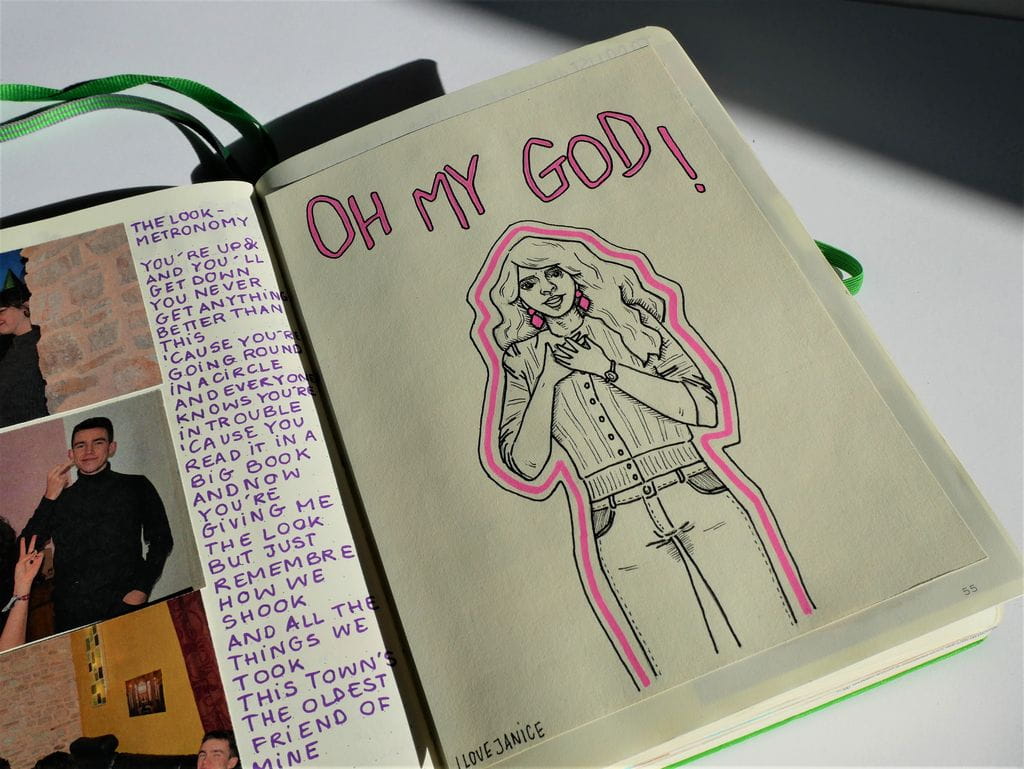 THE LOOK -
METRONOMY
YOU'RE UP &
AND YOU'LL
GET DOWN
YOU NEVER
GET ANYTHING
BETTER THAN
THIS
'CAUSE YOU'RE
GOING ROUND
IN A CIRCLE
AND EVERYONE
KNOWS YOU'RE
IN TROUBLE
'CAUSE YOU
READ IT IN A
BIG BOOK
AND NOW
YOU'RE
GIVING ME
THE LOOK
BUT JUST
REMEMBRE
HOW WE
SHOOK
AND ALL THE
THINGS WE
TOOK
THIS TOWN'S
THE OLDEST
FRIEND OF
MINE
OH MY GOD!
I LOVE JANICE
55